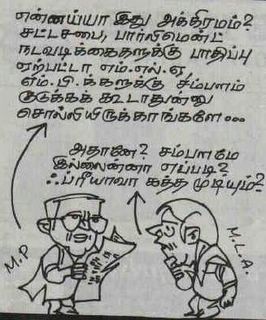 என்னய்யா இது அக்கிரமம்?
சட்டசபை, பார்லிமென்ட்
நடவடிக்கைகளுக்கு பாதிப்பு
ஏற்பட்டா எம்.எல்.ஏ,
எம்.பி.க்களுக்கு சம்பளம்
குடுக்கக் கூடாதுன்னு
சொல்லியிருக்காங்களே...
அதானே? சம்பளமே
இல்லைன்னா எப்படி?
ஃப்ரீயாவா கத்த முடியும்?
M.P
M.L.A.